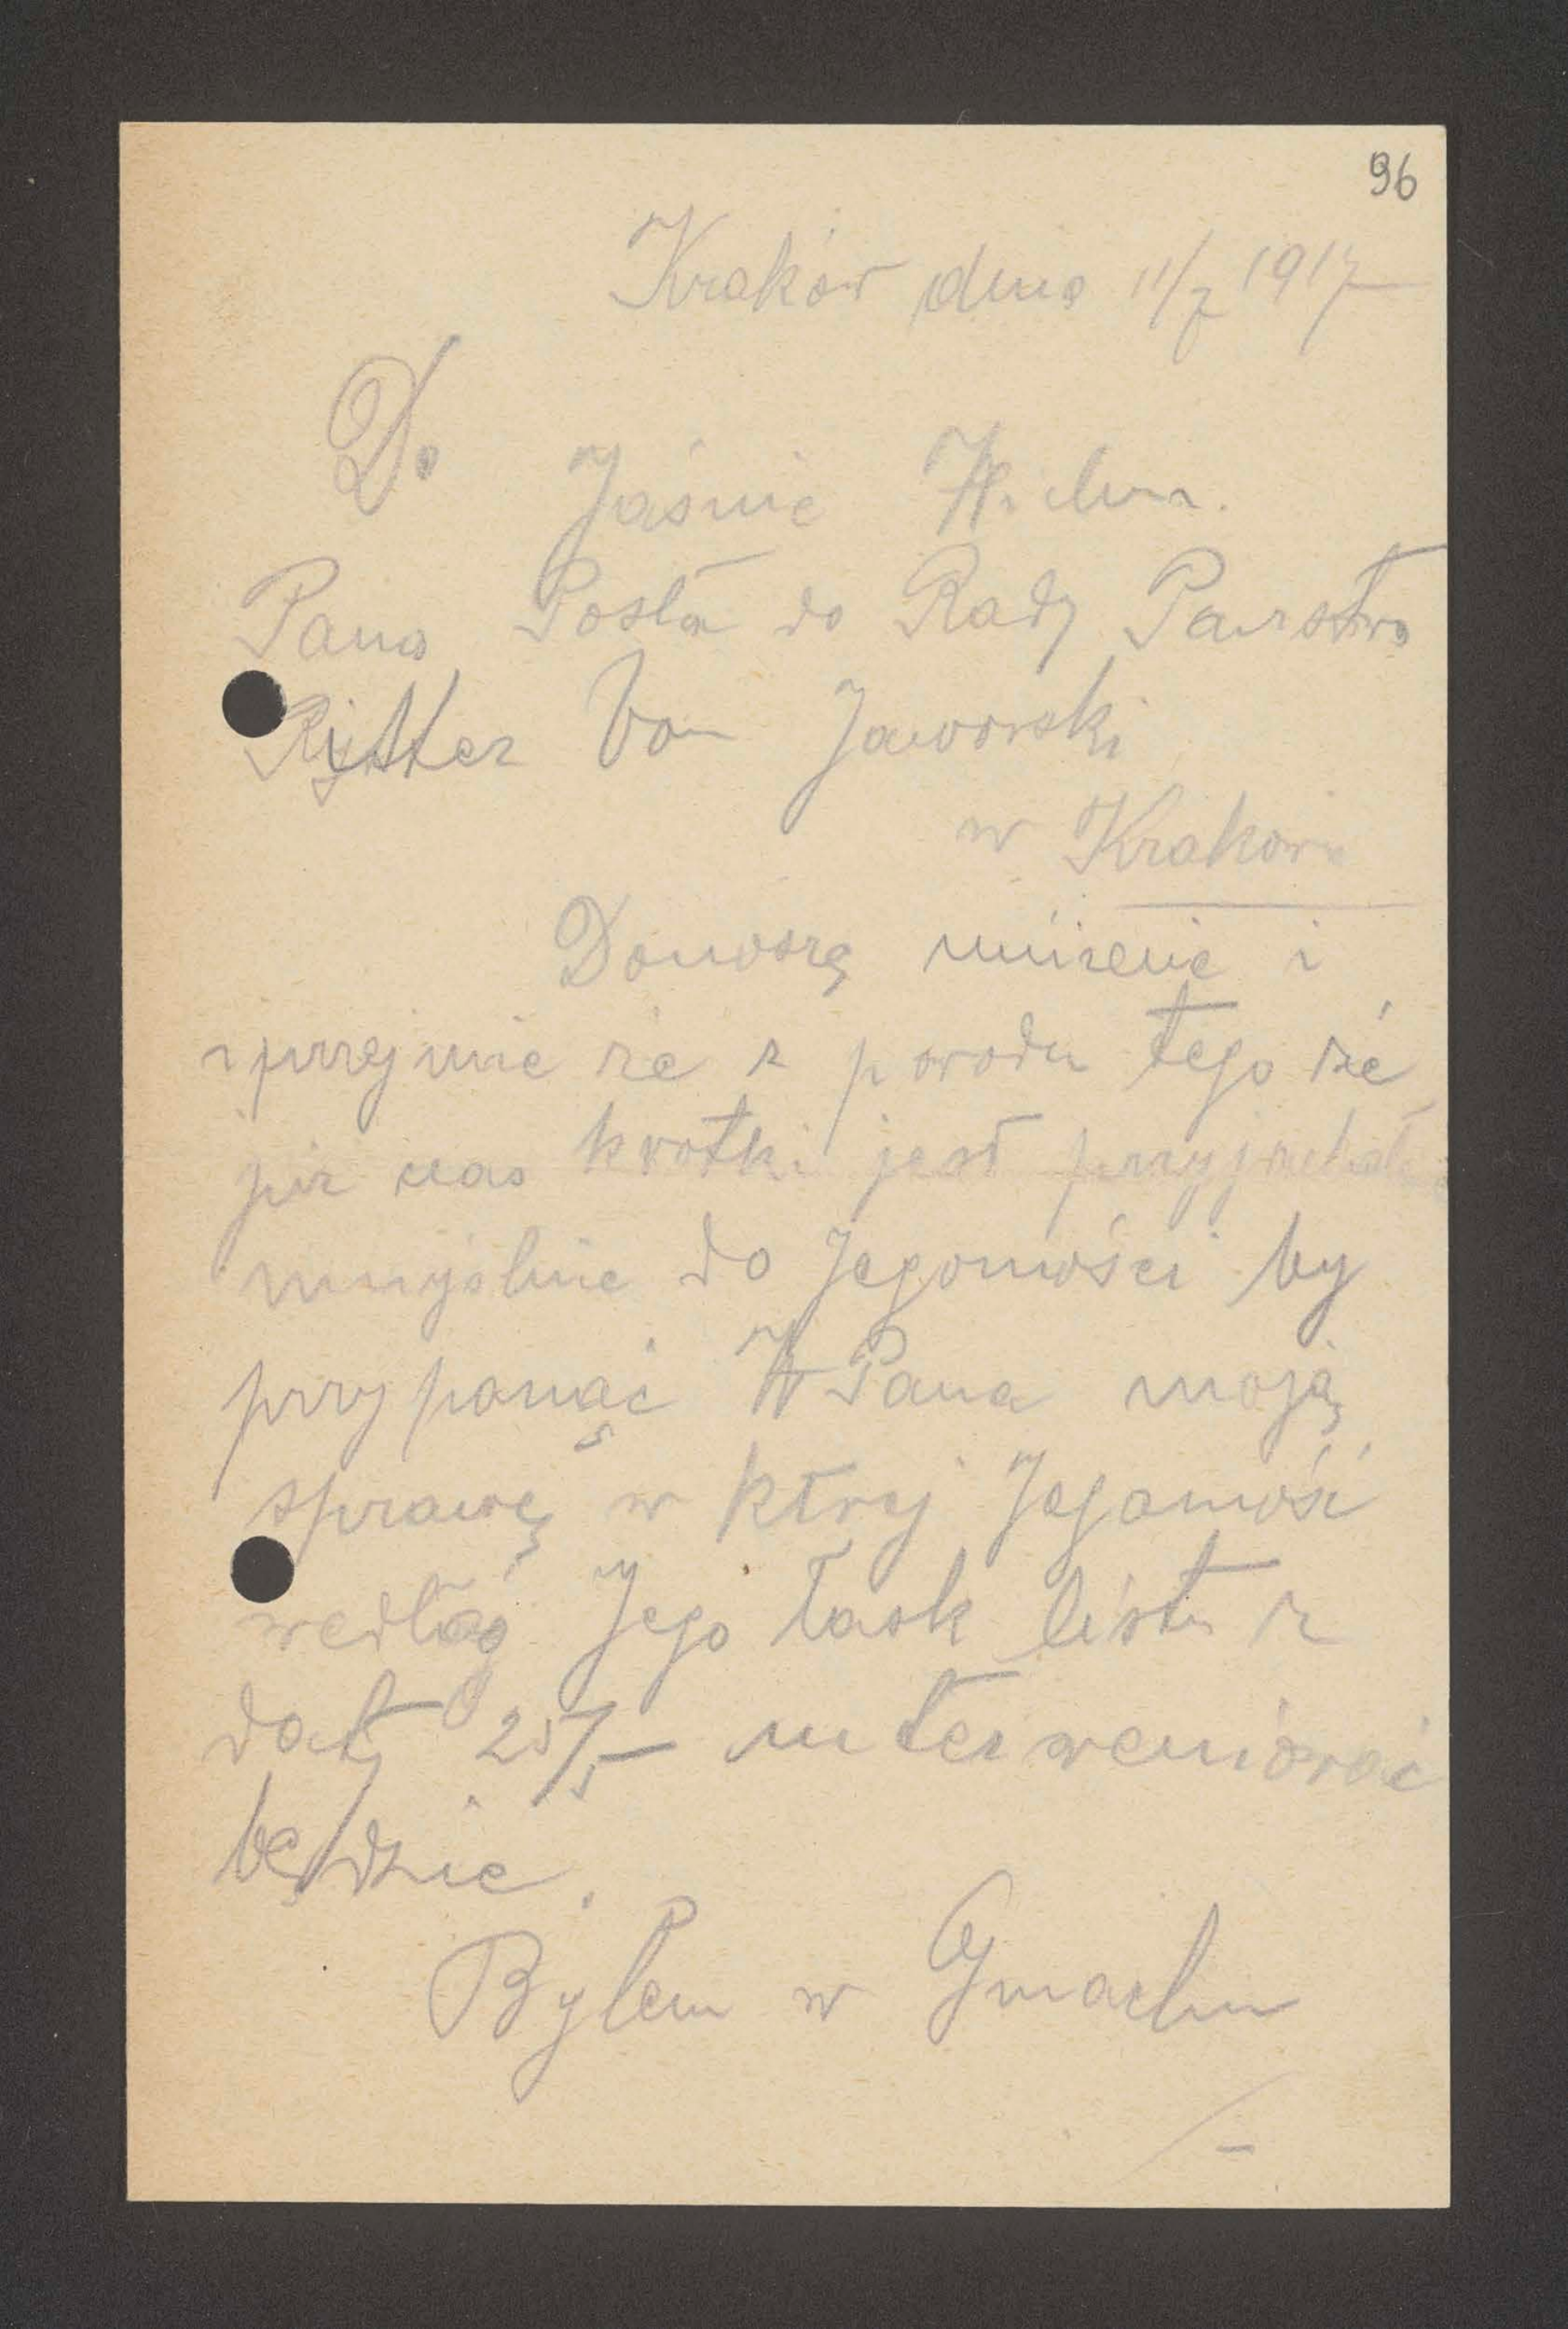 96
Kraków dnia 11/7 1917
Do
Jaśnie
Pana Posła do Rady Państwa
Ritter von Jaworski
w Krakowie
Donoszę uniżenie i
uprzejmie że z powodu tego że
już czas krotki jest przyjechałem
umyślnie do Jegomości by
przypomąć W Pana moją
sprawę w ktrej Jegomość
wedłóg Jego łask listu z
daty 25/5 – interweniować
będzie.
Byłem w Gmachu